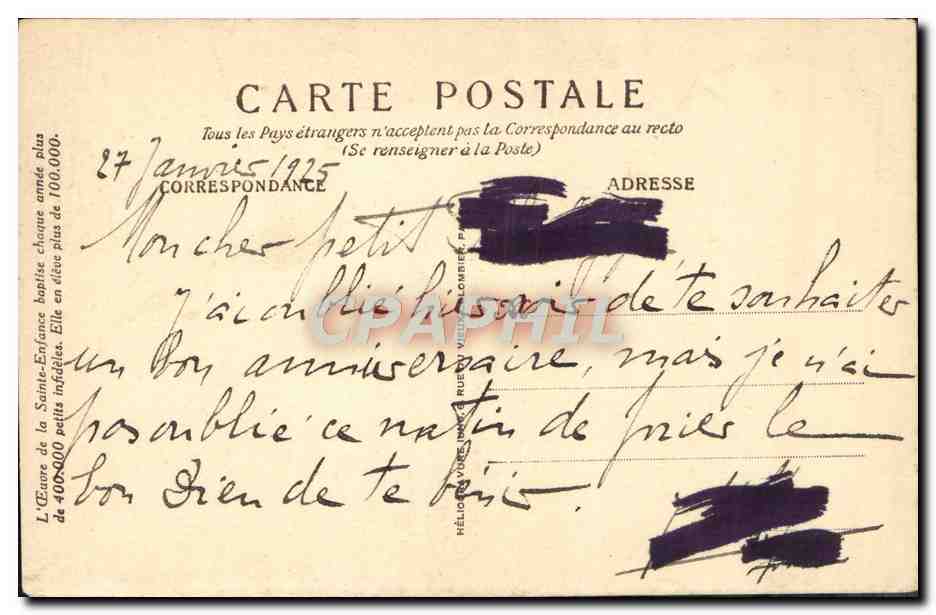 CARTE POSTALE
Tous les Pays étrangers n'acceptent pas la Correspondance au recto
(Se renseigner à la Poste)
27 Janvier 1925
CORRESPONDANCE
ADRESSE
Mon cher petit
J'ai oublié hier soir de te souhaiter
un bon anniversaire, mais je n'ai
pas oublié ce matin de prier le
bon Dieu de te bénir.
L'Œuvre de la Sainte-Enfance baptise chaque année plus
de 400.000 petits infidèles. Elle en élève plus de 100.000.
RUE DU VIEUX COLOMBIER, PA
CPAPHIL